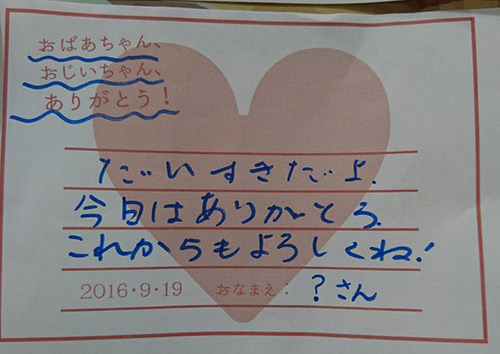 おばあちゃん、
おじいちゃん、
ありがとう!
だいすきだよ.
今日はありがとう
これからもよろしくね!
2016・9・19 おなまえ: ?さん